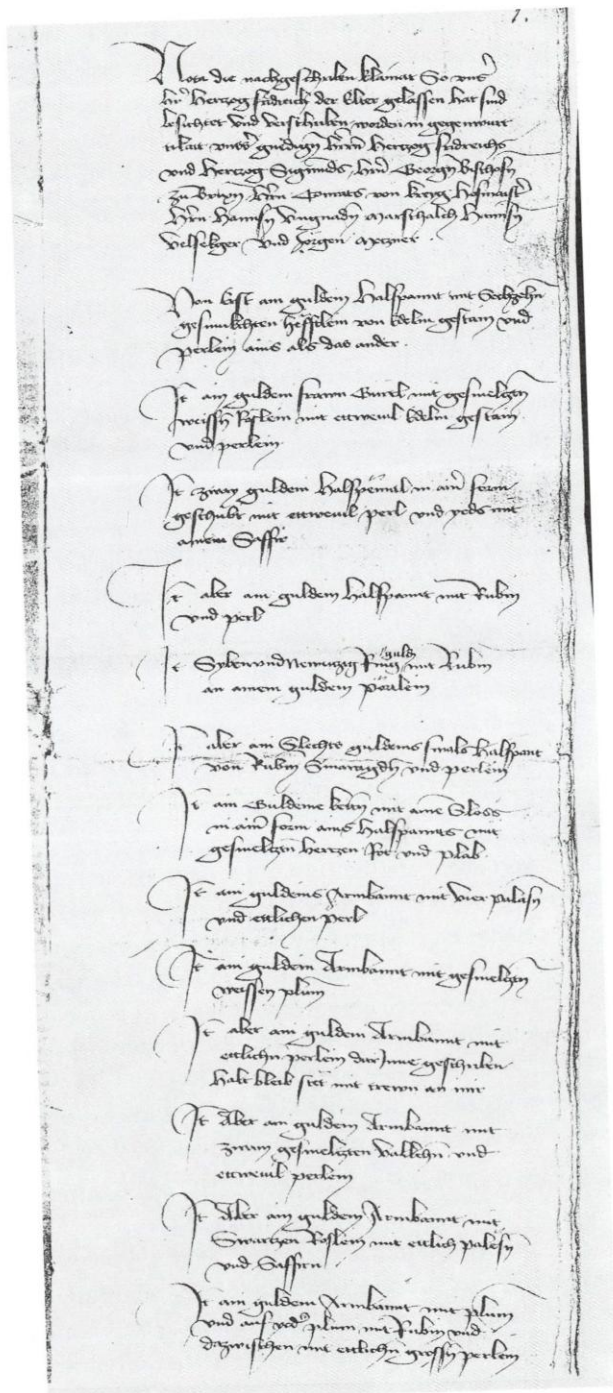 1.
Nota die nachgeschriben klainat So uns̄
hr̄ Hertzog fridreich der Elter gelassen hat sind
besichtet und verschriben worden in gegenwurt
unnsr̄ gnedign̄ hern̄ Hertzog fridreichs
und Hertzog Sigmunds hrn̄ Georgn̄ Bischofn̄
zu Brixn̄ hern̄ Connrats von kreyg hofmaistr̄
hern̄ Hannsn̄ Ungnadn̄ Marschalich Hannsn̄
und Jorgen
Von Erst ain guldein halspannt mit Sechzehn̄
gesmukchten hefftlein von Edelm gestain und
perlein ains als das ander.
It̄ ain guldein frawn Gurtl mit gesmeltztn̄
weissn̄ Roslein mit ettweuil Edelm gestain
und perlein
It̄ zway guldein halspenntl in ainr̄ form
mit ettweuil perl und yeds mit
ainem Saffir
It̄ aber ain guldein halspannt mit Rubin
und perl
guldin
It̄ Sybenundnewntzig Ring mit Rubin
an ainem guldein pörtlein
It̄ aber ain Slechts guldeins smals halspant
von Rubin Smaragdn̄ und perlein
It̄ ain Guldeine ketn̄ mit aim Sloss
in ainr̄ form ains halspannts mit
gesmeltztn̄ hertzen Rot und plab
It̄ ain guldeins Armbannt mit vier palasn̄
und ettlichen perl
It̄ ain guldein Armbannt mit gesmeltztn̄
weissen plumn̄
It̄ aber ain guldein Armbannt mit
ettlichn̄ perlein dar Inne geschriben
halt bleib stet mit trewn an mir
It̄ Aber ain guldein Armbannt mit
zwain gesmeltzten valkhn̄ und
ettweuil perlein
It̄ Aber ain guldein Armbannt mit
Swartzen Roslein mit ettlich palasn̄
und Saffirn
It̄ ain guldein Armbannt mit plumn̄
und auf yedr̄ plum ain Rubin und
dazwischen mit ettlichn̄ grossn̄ perlein